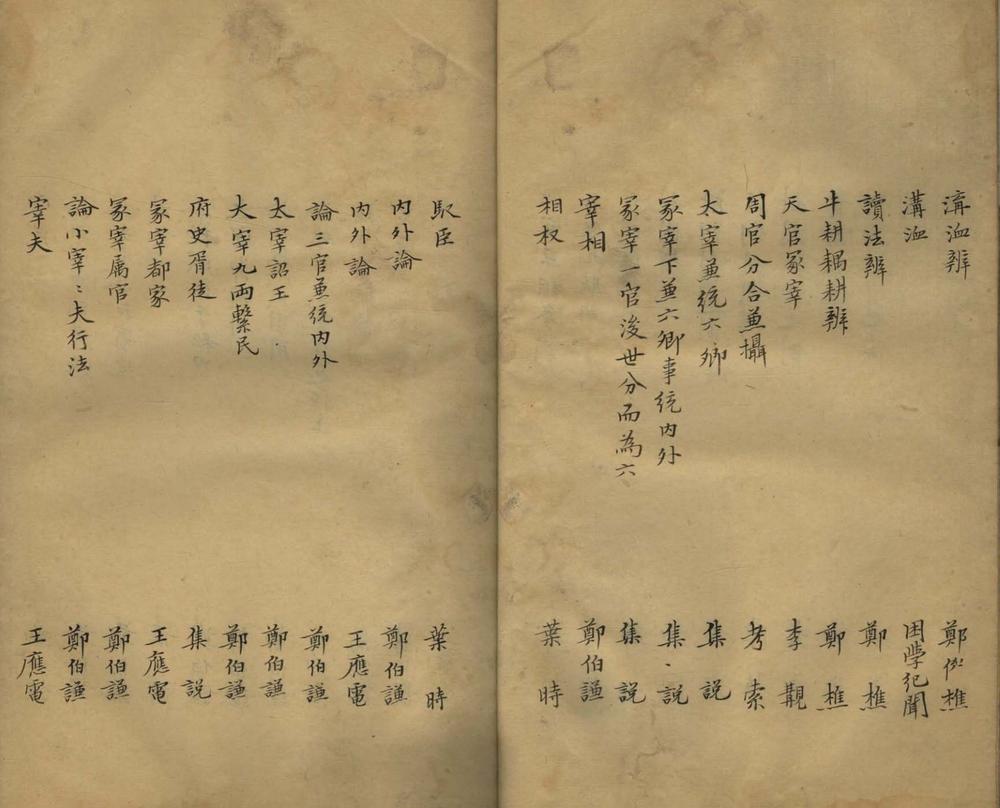 溝洫辨 鄭伯樵
溝洫 困学纪聞
讀法辨 鄭樵
牛耕耦耕辨 鄭樵
天官冢宰 李覯
周官分合兼攝 考索
太宰兼統六卿 集説
冢宰下兼六卿事統内外 集説
冢宰一官後世分而為六 集説
宰相 鄭伯謙
相权 葉時
馭臣 葉時
内外論 鄭伯謙
内外論 王應電
論三官兼統内外 鄭伯謙
太宰詔王 鄭伯謙
大宰九兩繫民 鄭伯謙
府史胥徒 集説
冢宰都家 王應電
冢宰属官 鄭伯謙
論小宰〻夫行法 鄭伯謙
宰夫 王應電